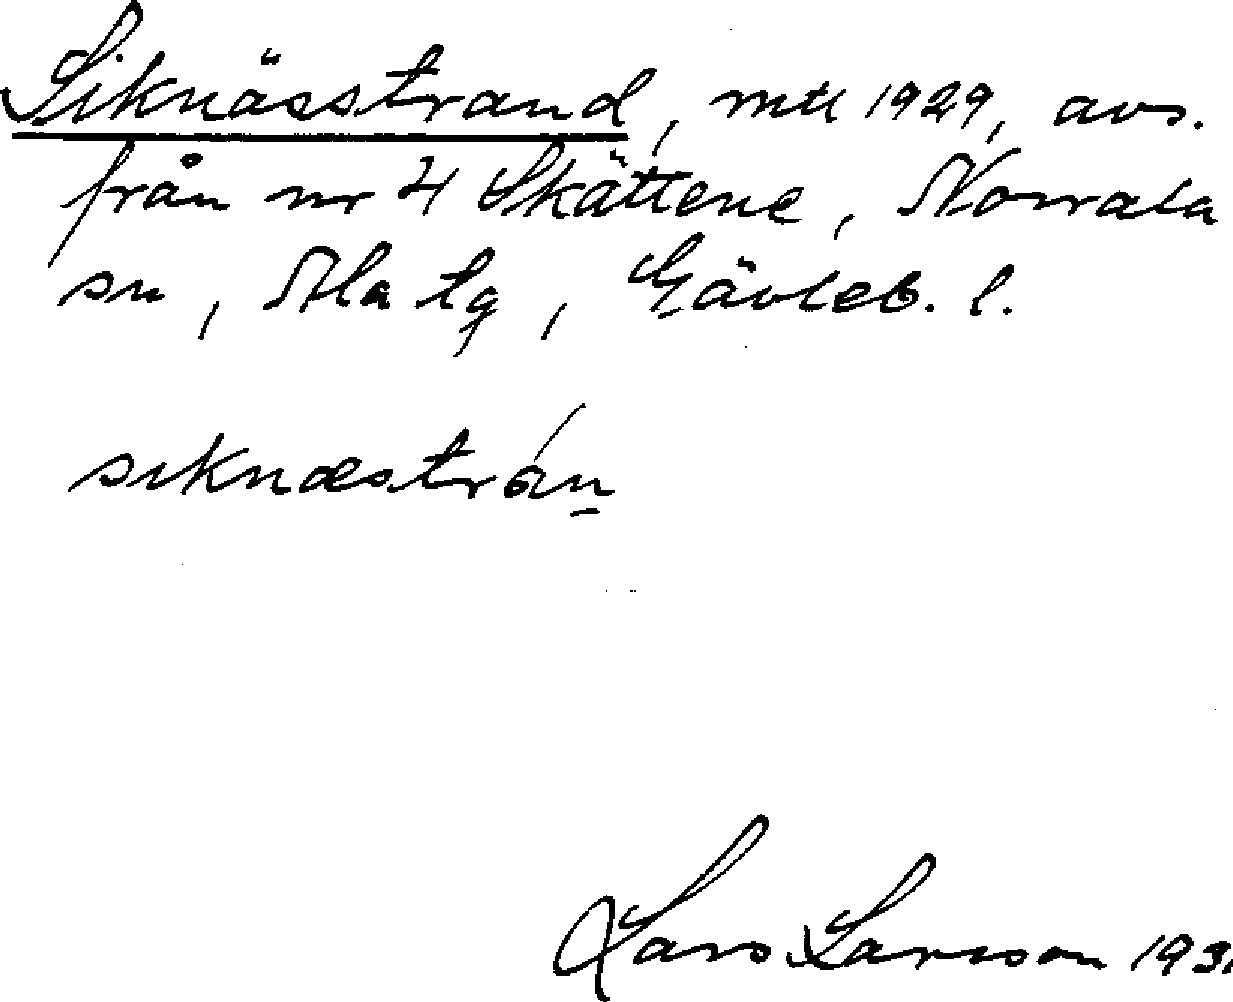 Siknässtrand, mtl 1929, avs.
från nr 4 Skättene, Norrala
sn, Ala tg, Gävleb. l.
siknæstrán
Lars Larsson 1931